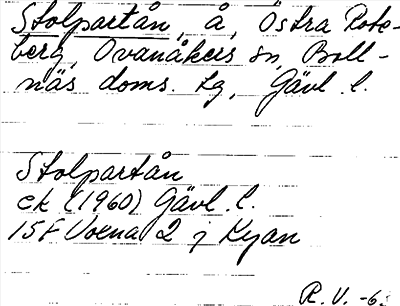 Stolpartån, å, Östra Rote-
berg, Ovanåkers sn, Boll-
näs doms. tg, Gävl. l.
Stolpartån
ek (1960) Gävl. l.
15F Voxna 2 j Kyan
R. V. -63